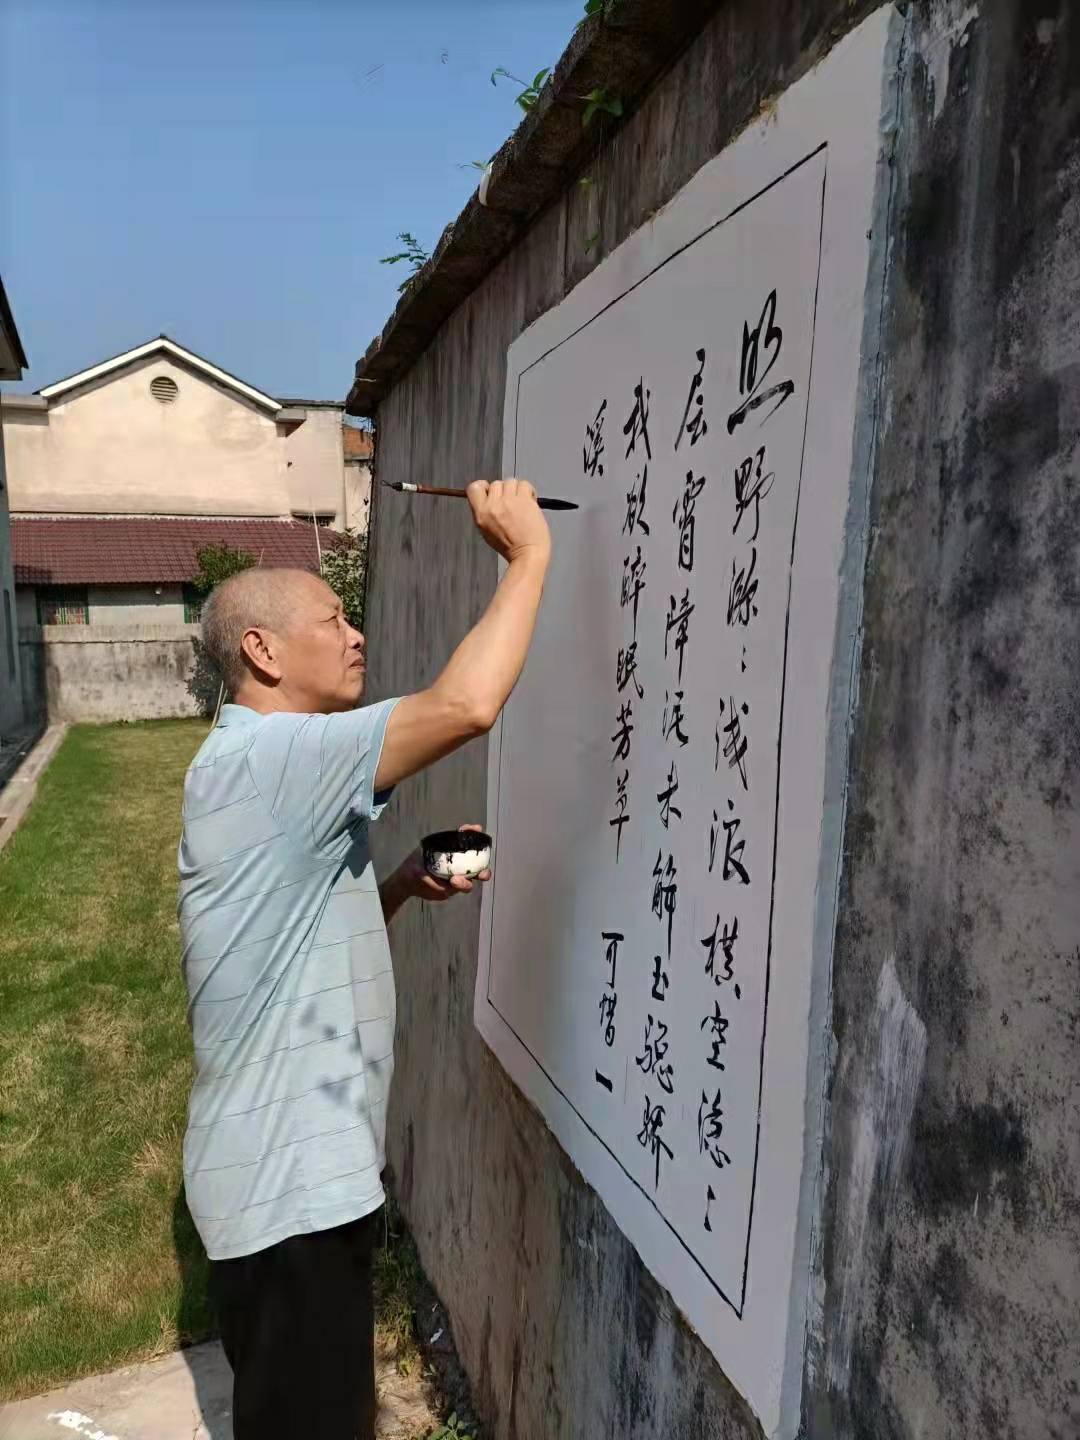 照野弥〻浅浪 横空隐〻
层霄 障泥未解玉骢骄
我欲醉眠芳草 可惜一
溪